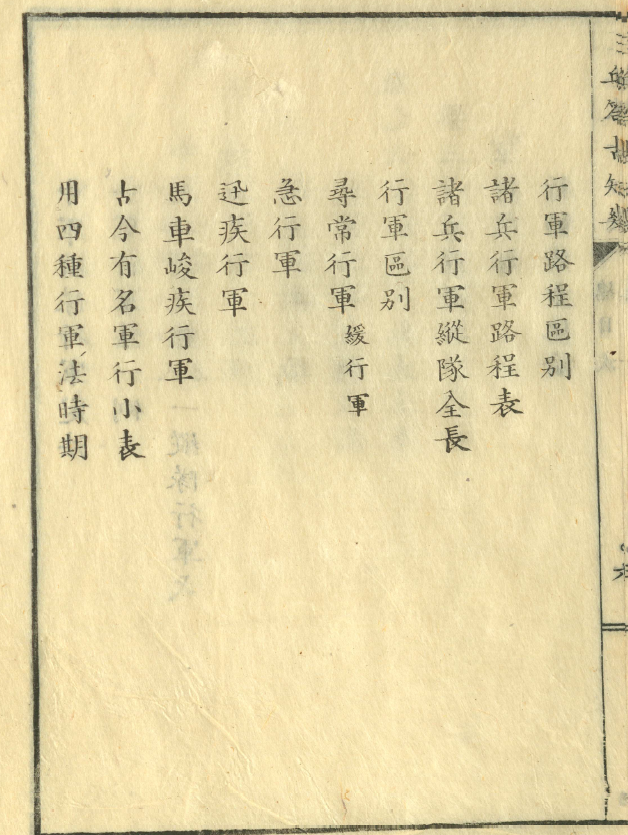 行軍路程區別
諸兵行軍路程表
諸兵行軍縱隊全長
行軍區別
尋常行軍 緩行軍
急行軍
迅疾行軍
馬車峻疾行軍
古今有名軍行小表
用四種行軍法時期